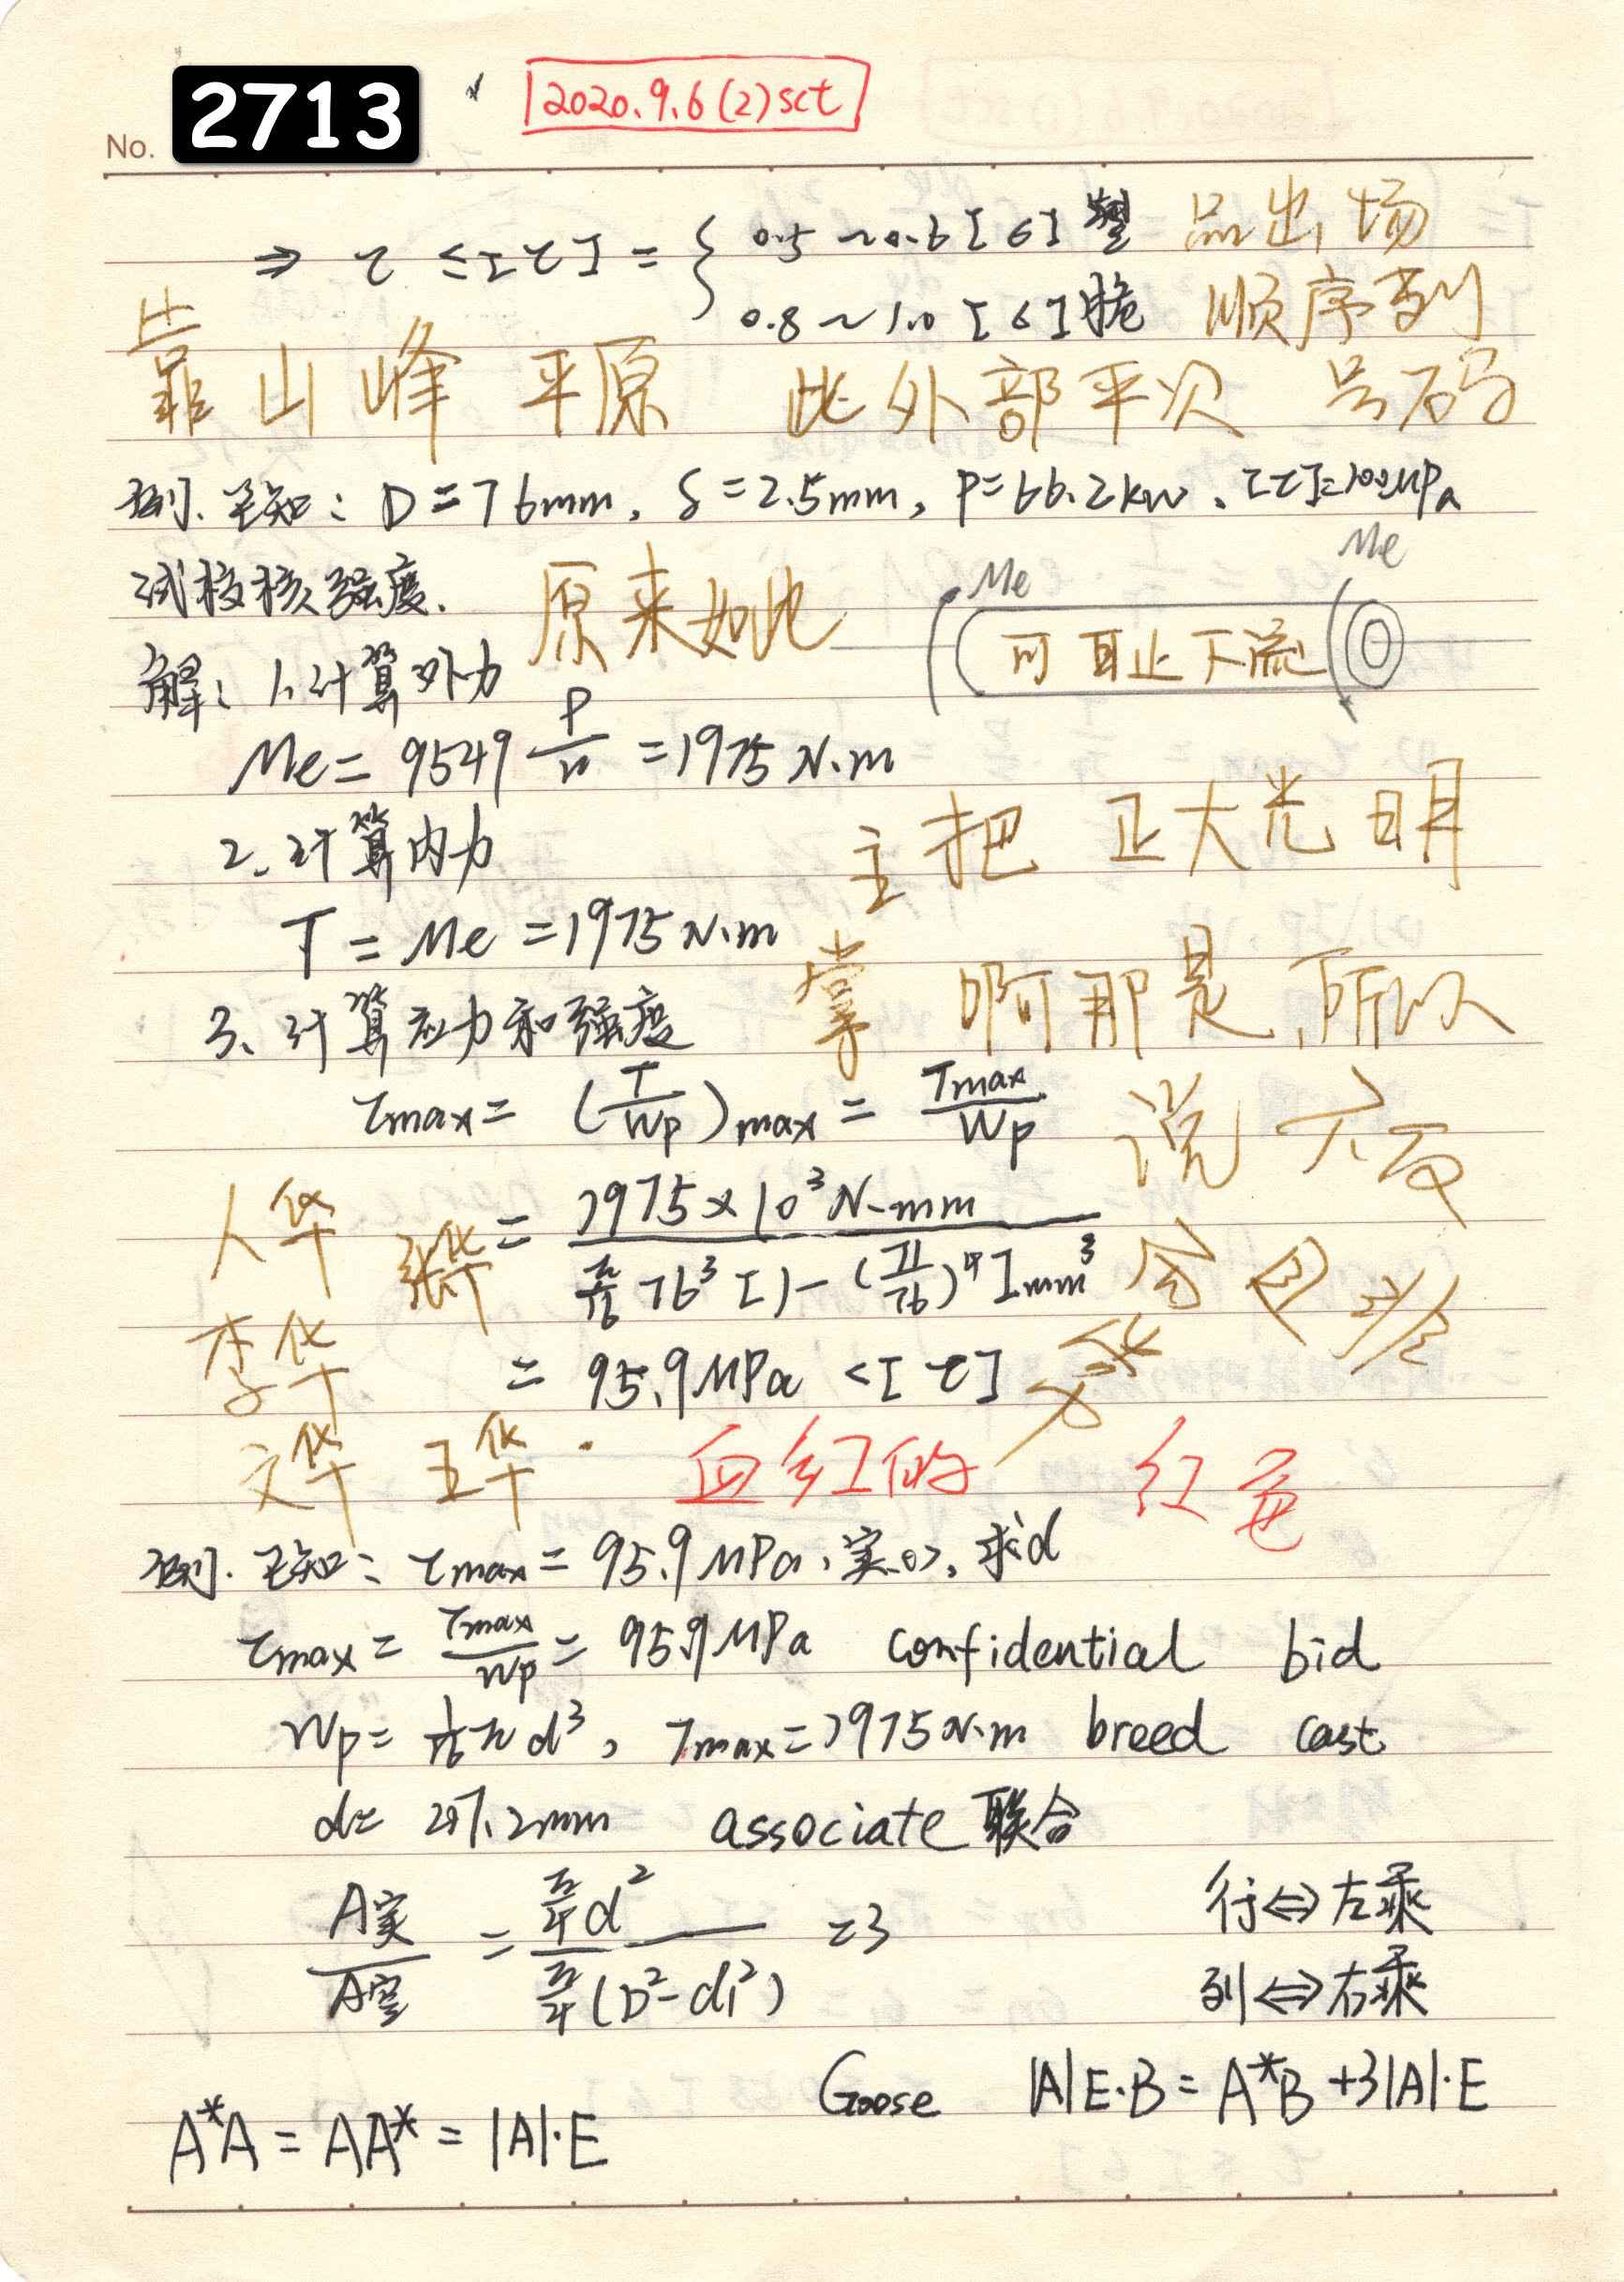 No. 2713
2020.9.6(2)sct
⇒ τ ≤[τ]= { 0.5~0.6[σ] 塑 品出场
0.8~1.0[σ]脆 顺序列
靠山峰 平原 此外部平次 号码
例. 已知: D=76mm, δ=2.5mm, P=66.2kw, [τ]=100MPa
试校核强度. 原来如此
Me Me
可耻止下流
解: 1.计算外力
Me= 9549 P/n =1975 N·m
2、计算内力
主把 正大光明
T = Me =1975N·m
掌 啊那是,所以
3、计算应力和强度
τmax= (T/Wp)max = Tmax/Wp
说 六反
人华 张华
= 1975×10³N·mm / π/16 76³[1-(71/76)⁴]mm³
李华
= 95.9MPa <[τ]
文华 王华 血红的 红色
例. 已知: τmax= 95.9MPa, 实心, 求d
τmax= Tmax/Wp = 95.9MPa confidential bid
Wp= 1/16 π d³, Tmax=1975N·m breed cast
d= 47.2mm associate 联合
A实/A空 = π/4 d² / π/4 (D²-d₁²) =3
行⇔左乘
列⇔右乘
Goose |A|E·B = A*B +3|A|·E
A*A = AA* = |A|·E